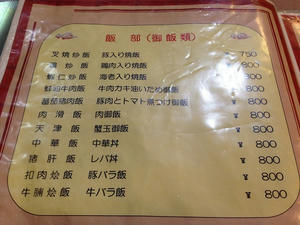 飯 部 (御飯類)
叉焼炒飯 豚入り焼飯 ￥750
鶏炒飯 鶏肉入り焼飯 ￥800
蝦仁炒飯 海老入り焼飯 ￥800
蚵油牛肉飯 牛肉カキ油いため御飯 ￥800
蕃茄猪肉飯 豚肉とトマト煮つけ御飯 ￥800
肉滑飯 肉御飯 ￥800
天津飯 蟹玉御飯 ￥800
中華飯 中華丼 ￥800
猪肝飯 レバ丼 ￥800
扣肉烩飯 豚バラ飯 ￥800
牛腩烩飯 牛バラ飯 ￥800